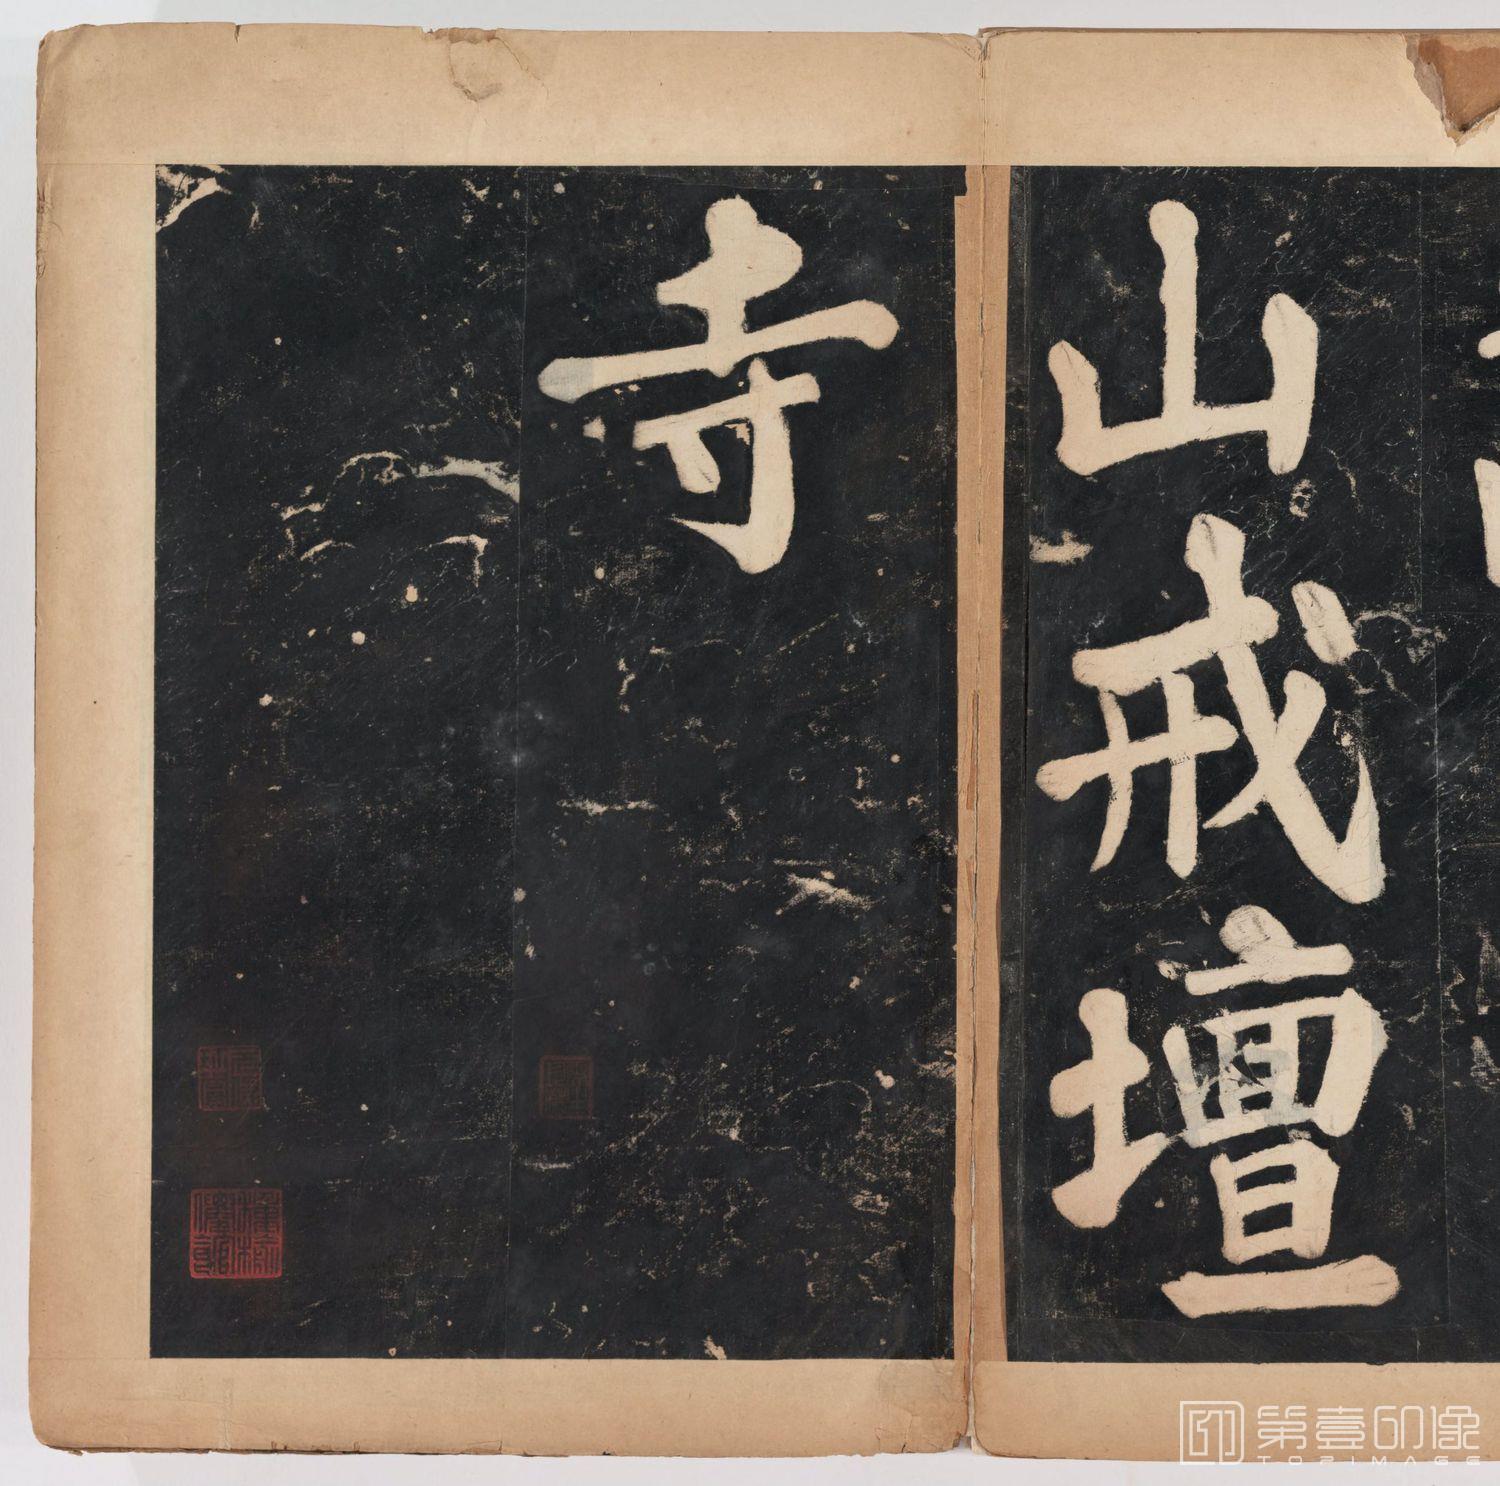 山戒壇
寺
第壹印像
TOPIMAGE